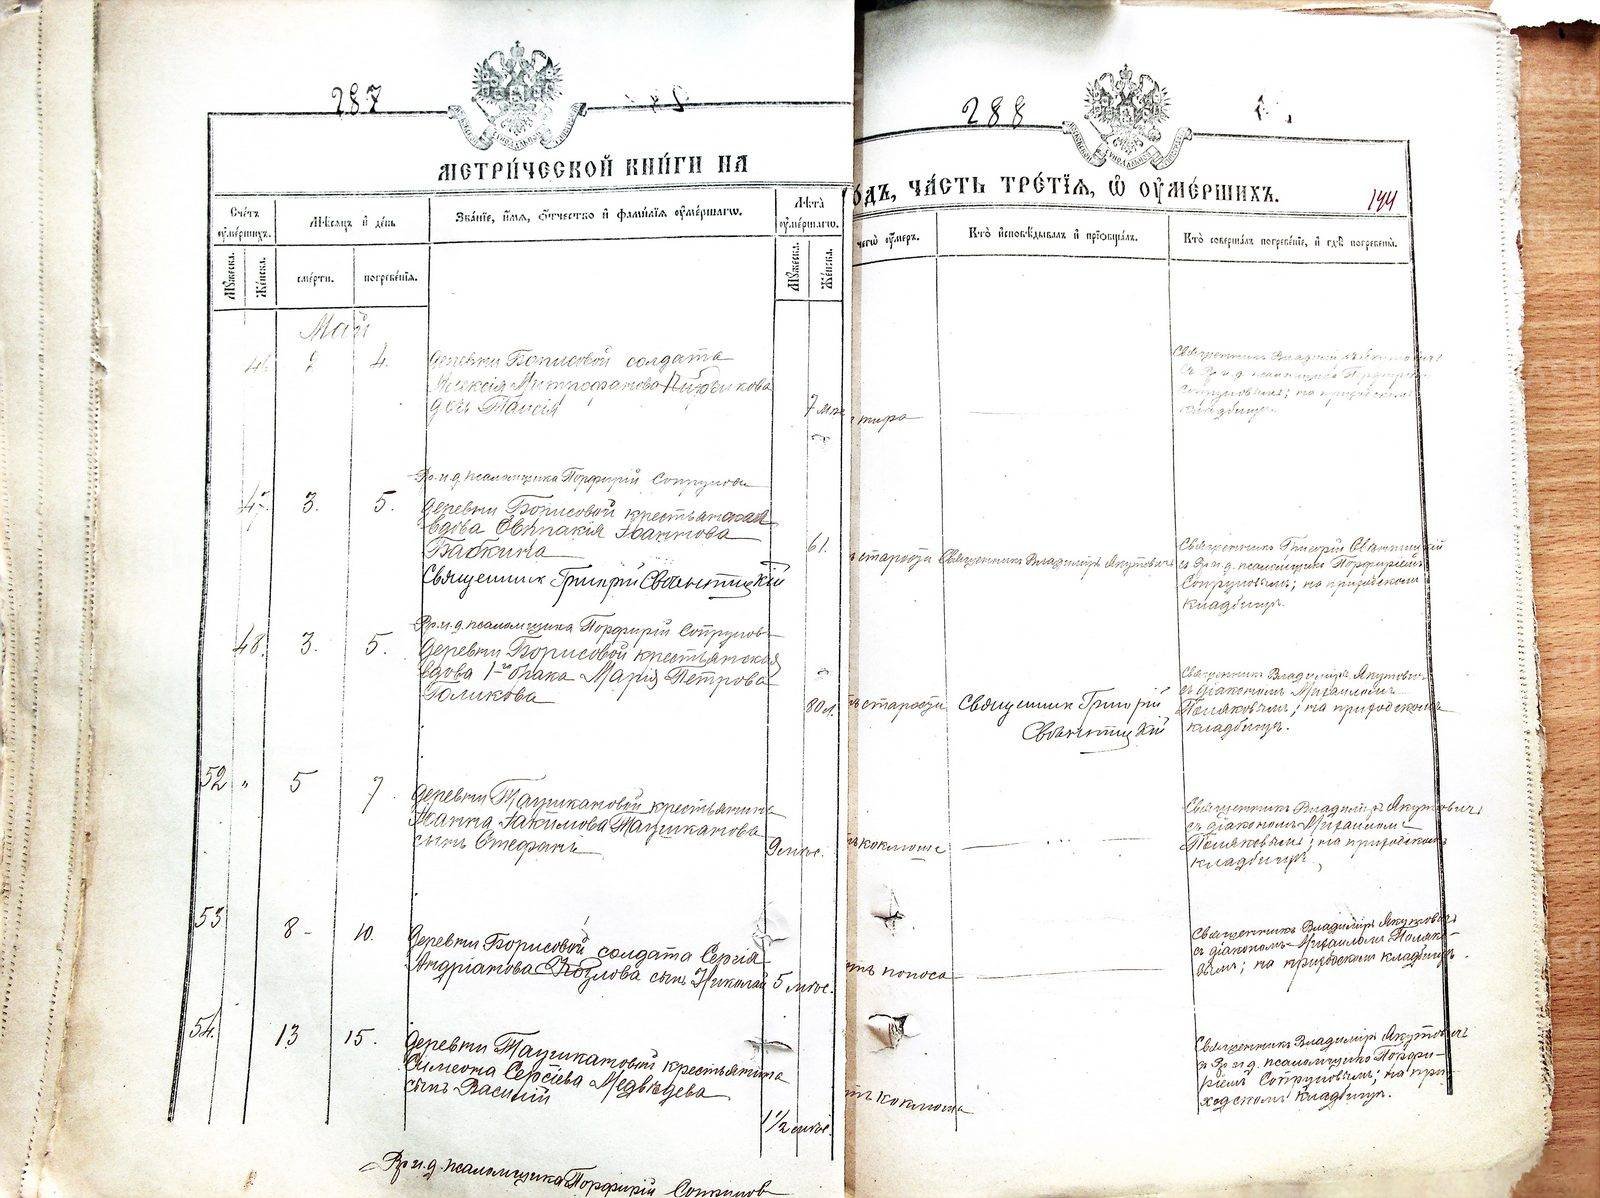 287
МЕТРИ́ЧЕСКОЙ КНИ́ГИ НА
Сче́тъ ᲂу҆ме́ршихъ.
Мѣ́сяцъ и҆ де́нь
Зва́нїе, и҆́мя, ѻ҆́тчество и҆ фами́лїя ᲂу҆ме́ршагѡ.
Лѣ́та ᲂу҆ме́ршагѡ.
Мꙋ́жеска.
Же́нска.
сме́рти.
погребе́нїя.
Мꙋ́жеска.
Же́нска.
Май
46 4
деревни Борисовой солдата
Митрофанова
дочь Таисія
7 мѣс
Вр. и. д. псаломщика Порфирій Сопрунов
47. 3. 5.
деревни Борисовой крестьянская
вдова Іоаннова
Бабкина
61.
Священник Григрій
Вр. и. д. псаломщика Порфирій Сопрунов
48. 3. 5.
деревни Борисовой крестьянская
вдова 1-го брака Марія Петрова
Голикова
80 л.
52 „ 5 7
деревни Таушкановой крестьянина
Іоанна Іакимова Таушканова
сынъ Стефанъ
9 мѣс.
53 8 - 10.
деревни Борисовой солдата Сергія
Андріанова Козлова сынъ Николай
5 мѣс.
54. 13 15.
деревни Таушкановой крестьянина
Симеона Сергіева Медвѣдева
сынъ Василій
1 1/2 мѣс.
Вр. и. д. псаломщика Порфирій Сопрунов
288
ГО́ДЪ, ЧА́СТЬ ТРЕ́ТЇЯ, Ѡ҆ ОУ҆МЕ́РШИХЪ.
144
чегѡ̀ ᲂу҆́меръ.
Кто̀ и҆сповѣ́дывалъ и҆ прїѻбща́лъ.
Кто̀ соверша́лъ погребе́нїе, и҆ гдѣ̀ погребены̀.
тира
Священникъ
на приходскомъ
кладбищѣ.
старости
Священникъ Владиміръ Якутовичъ
Священникъ Григрій
съ Вр. и. д. псаломщика Порфиріемъ
Сопруновымъ; на приходскомъ
кладбищѣ.
старости
Священник Григорій
Священникъ Владиміръ Якутович
съ діакономъ Михаиломъ
Поляковымъ; на приходскомъ
кладбищѣ.
коклюша
Священникъ Владиміръ Якутовичъ
съ діакономъ Михаиломъ
Поляковымъ; на приходскомъ
кладбищѣ
поноса
Священникъ Владиміръ Якутовичъ
съ діакономъ Михаиломъ Поляко-
вымъ; на приходскомъ кладбищѣ.
коклюша
Священникъ Владиміръ Якутовичъ
съ Вр. и. д. псаломщика Порфи-
ріемъ Сопруновымъ; на при-
ходскомъ кладбищѣ.